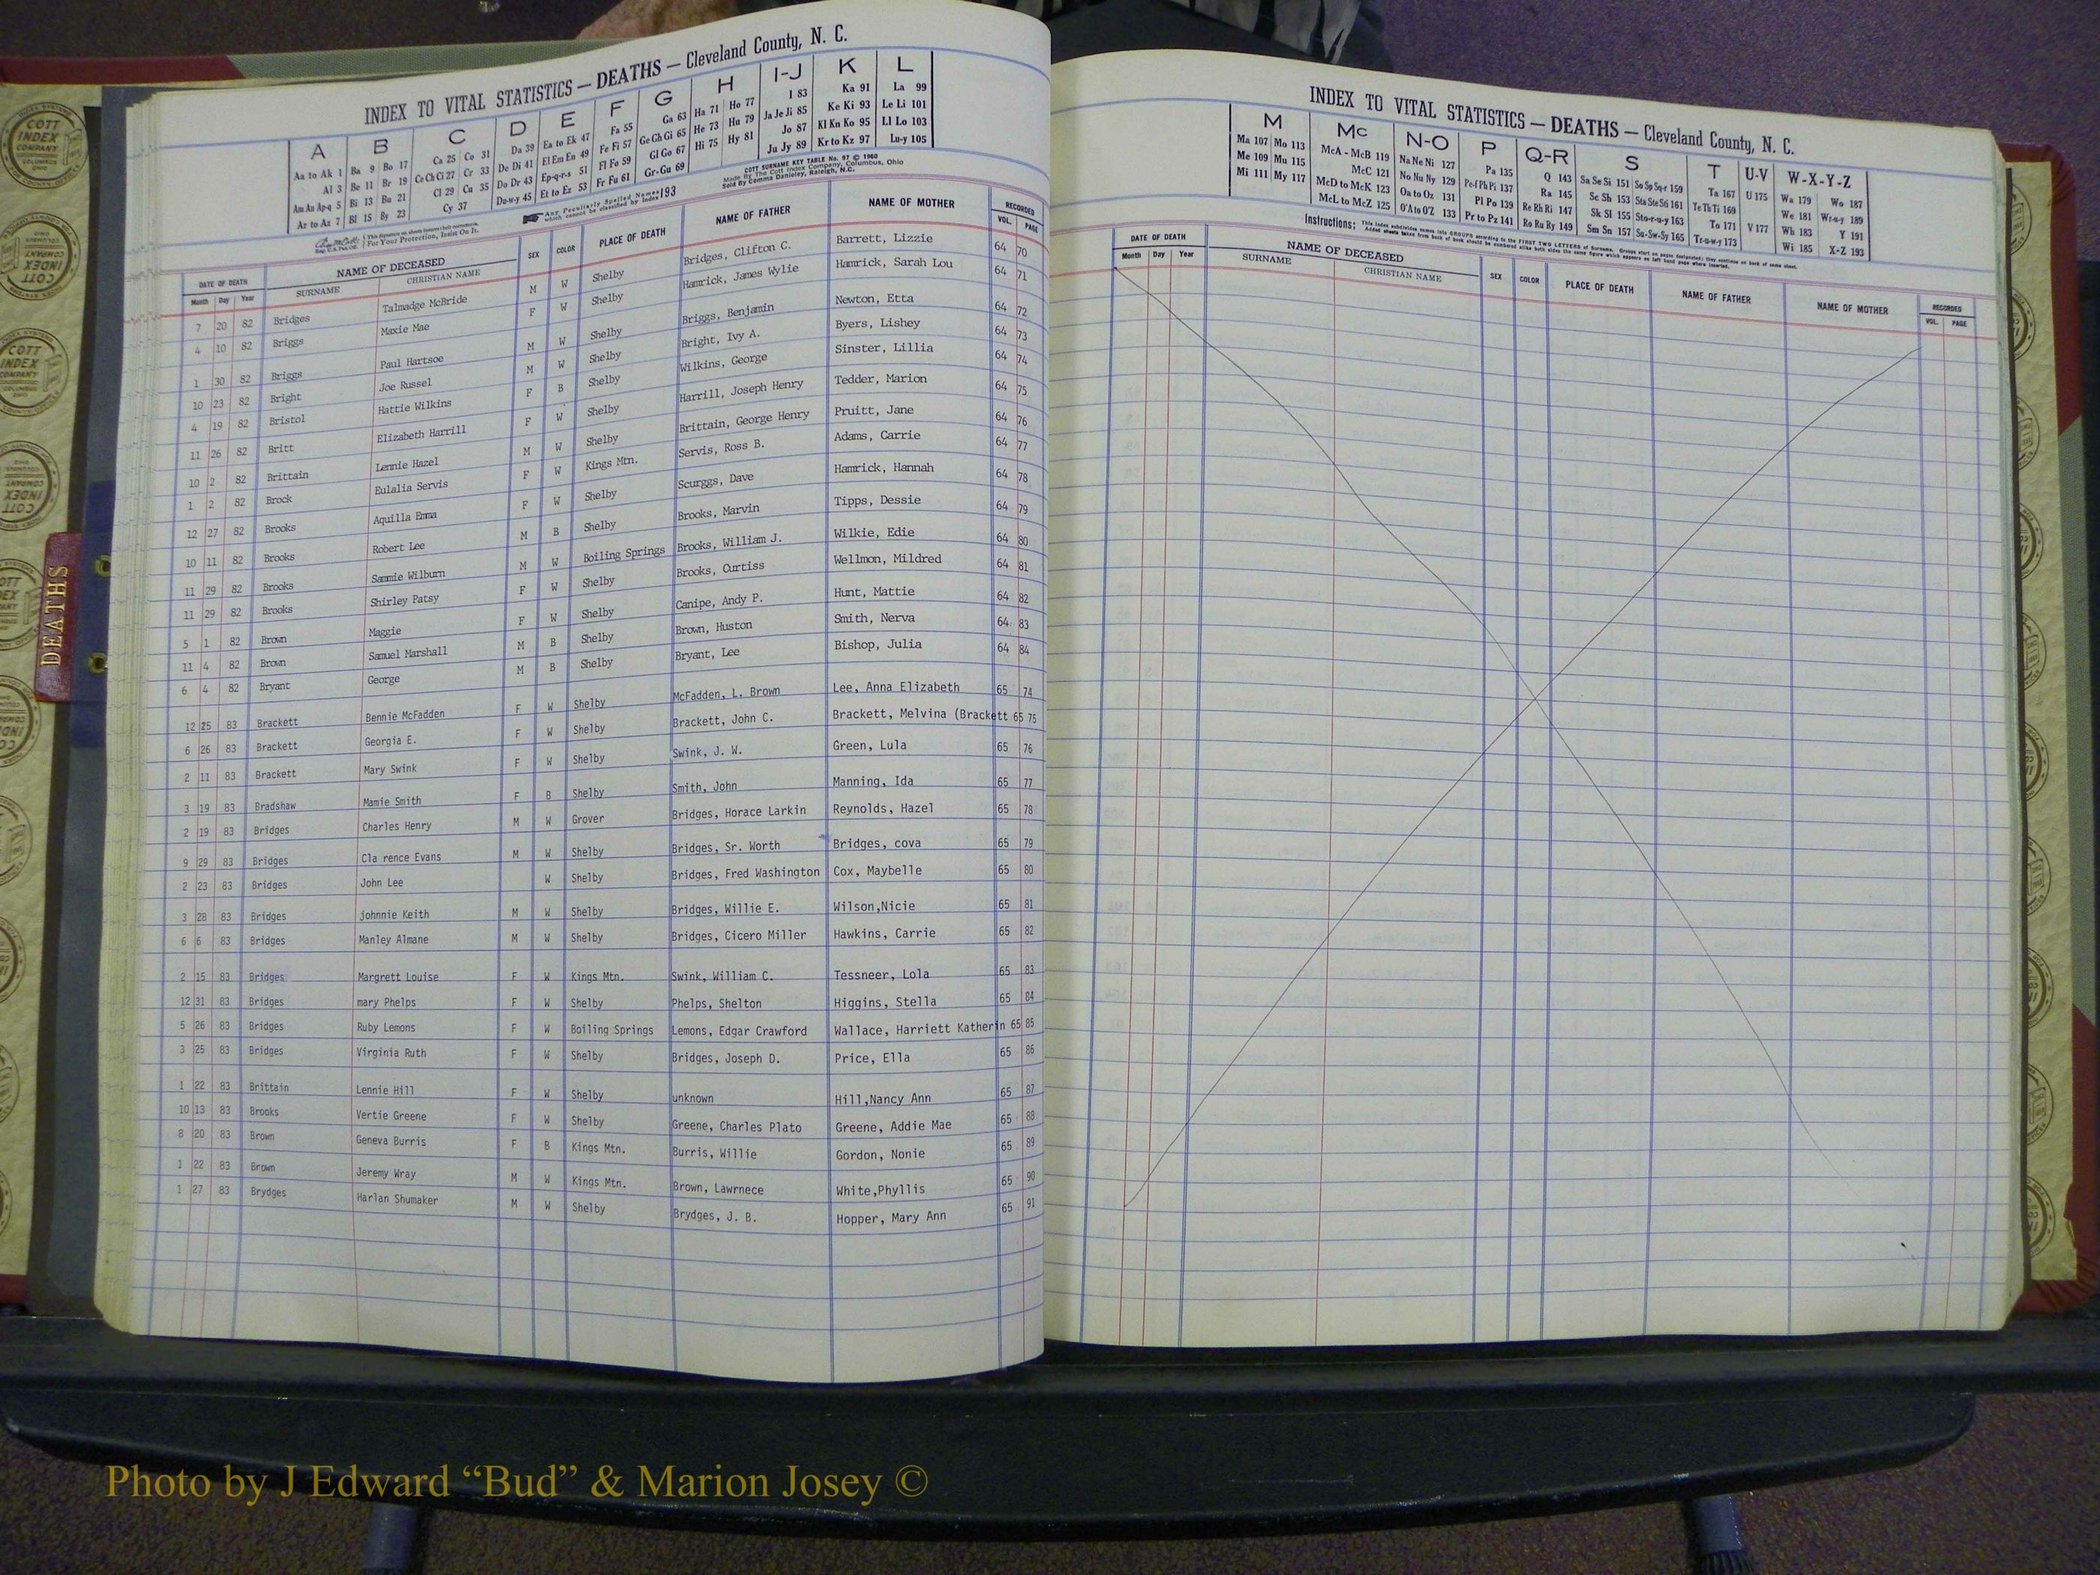 INDEX TO VITAL STATISTICS — DEATHS — Cleveland County, N. C.
A B C D E F G H I-J K L
Aa to Ak 1 Ba 9 Bo 17 Ca 25 Co 31 Da 39 Ea to Ek 47 Fa 55 Ga 63 Ha 71 Ho 77 I 83 Ka 91 La 99
Al 3 Be 11 Br 19 Ce Ch Ci 27 Cr 33 De Di 41 El Em En 49 Fe Fi 57 Ge Gh Gi 65 He 73 Hu 79 Ja Je Ji 85 Ke Ki 93 Le Li 101
Am An Ap-q 5 Bi 13 Bu 21 Cl 29 Cu 35 Do Dr 43 Ep-q-r-s 51 Fl Fo 59 Gl Go 67 Hi 75 Hy 81 Jo 87 Kl Kn Ko 95 Ll Lo 103
Ar to Az 7 Bl 15 By 23 Cy 37 Du-w-y 45 Et to Ez 53 Fr Fu 61 Gr-Gu 69 Ju Jy 89 Kr to Kz 97 Lu-y 105
This signature on sheets insures their correctness.
For Your Protection, Insist On It.
Any Peculiarly Spelled Names which cannot be classified by Index 193
COTT SURNAME KEY TABLE No. 97 © 1960
Made By The Cott Index Company, Columbus, Ohio
Sold By Comma Danieley, Raleigh, N.C.
DATE OF DEATH NAME OF DECEASED SEX COLOR PLACE OF DEATH NAME OF FATHER NAME OF MOTHER RECORDED
Month Day Year SURNAME CHRISTIAN NAME VOL. PAGE
7 20 82 Bridges Talmadge McBride M W Shelby Bridges, Clifton C. Barrett, Lizzie 64 70
4 10 82 Briggs Maxie Mae F W Shelby Hamrick, James Wylie Hamrick, Sarah Lou 64 71
1 30 82 Briggs Paul Hartsoe M W Shelby Briggs, Benjamin Newton, Etta 64 72
10 23 82 Bright Joe Russel M W Shelby Bright, Ivy A. Byers, Lishey 64 73
4 19 82 Bristol Hattie Wilkins F B Shelby Wilkins, George Sinster, Lillia 64 74
11 26 82 Britt Elizabeth Harrill F W Shelby Harrill, Joseph Henry Tedder, Marion 64 75
10 2 82 Brittain Lennie Hazel M W Shelby Brittain, George Henry Pruitt, Jane 64 76
1 2 82 Brock Eulalia Servis F W Kings Mtn. Servis, Ross B. Adams, Carrie 64 77
12 27 82 Brooks Aquilla Emma F W Shelby Scurggs, Dave Hamrick, Hannah 64 78
10 11 82 Brooks Robert Lee M B Shelby Brooks, Marvin Tipps, Dessie 64 79
11 29 82 Brooks Sammie Wilburn M W Boiling Springs Brooks, William J. Wilkie, Edie 64 80
11 29 82 Brooks Shirley Patsy F W Shelby Brooks, Curtiss Wellmon, Mildred 64 81
5 1 82 Brown Maggie F W Shelby Canipe, Andy P. Hunt, Mattie 64 82
11 4 82 Brown Samuel Marshall M B Shelby Brown, Huston Smith, Nerva 64 83
6 4 82 Bryant George M B Shelby Bryant, Lee Bishop, Julia 64 84
12 25 83 Brackett Bennie McFadden F W Shelby McFadden, L. Brown Lee, Anna Elizabeth 65 74
6 26 83 Brackett Georgia E. F W Shelby Brackett, John C. Brackett, Melvina (Brackett 65 75
2 11 83 Brackett Mary Swink F W Shelby Swink, J. W. Green, Lula 65 76
3 19 83 Bradshaw Mamie Smith F B Shelby Smith, John Manning, Ida 65 77
2 19 83 Bridges Charles Henry M W Grover Bridges, Horace Larkin Reynolds, Hazel 65 78
9 29 83 Bridges Cla rence Evans M W Shelby Bridges, Sr. Worth Bridges, cova 65 79
2 23 83 Bridges John Lee W Shelby Bridges, Fred Washington Cox, Maybelle 65 80
3 28 83 Bridges johnnie Keith M W Shelby Bridges, Willie E. Wilson,Nicie 65 81
6 6 83 Bridges Manley Almane M W Shelby Bridges, Cicero Miller Hawkins, Carrie 65 82
2 15 83 Bridges Margrett Louise F W Kings Mtn. Swink, William C. Tessneer, Lola 65 83
12 31 83 Bridges mary Phelps F W Shelby Phelps, Shelton Higgins, Stella 65 84
5 26 83 Bridges Ruby Lemons F W Boiling Springs Lemons, Edgar Crawford Wallace, Harriett Katherin 65 85
3 25 83 Bridges Virginia Ruth F W Shelby Bridges, Joseph D. Price, Ella 65 86
1 22 83 Brittain Lennie Hill F W Shelby unknown Hill,Nancy Ann 65 87
10 13 83 Brooks Vertie Greene F W Shelby Greene, Charles Plato Greene, Addie Mae 65 88
8 20 83 Brown Geneva Burris F B Kings Mtn. Burris, Willie Gordon, Nonie 65 89
1 22 83 Brown Jeremy Wray M W Kings Mtn. Brown, Lawrnece White,Phyllis 65 90
1 27 83 Brydges Harlan Shumaker M W Shelby Brydges, J. B. Hopper, Mary Ann 65 91
INDEX TO VITAL STATISTICS — DEATHS — Cleveland County, N. C.
M Mc N-O P Q-R S T U-V W-X-Y-Z
Ma 107 Mo 113 McA - McB 119 Na Ne Ni 127 Pa 135 Q 143 Sa Se Si 151 So Sp Sq-r 159 Ta 167 U 175 Wa 179 Wo 187
Me 109 Mu 115 McC 121 No Nu Ny 129 Pe-f Ph Pi 137 Ra 145 Sc Sh 153 Sta Ste Sti 161 Te Th Ti 169 We 181 Wr-u-y 189
Mi 111 My 117 McD to McK 123 Oa to Oz 131 Pl Po 139 Re Rh Ri 147 Sk Sl 155 Sto-r-u-y 163 To 171 V 177 Wh 183 Y 191
McL to McZ 125 O'A to O'Z 133 Pr to Pz 141 Ro Ru Ry 149 Sm Sn 157 Su-Sw-Sy 165 Tr-u-w-y 173 Wi 185 X-Z 193
Instructions: This index subdivides names into GROUPS according to the FIRST TWO LETTERS of Surname. Groups start on pages designated; they continue on back of same sheet.
Added sheets taken from back of book should be numbered alike both sides the same figure which appears on left hand page where inserted.
DATE OF DEATH NAME OF DECEASED SEX COLOR PLACE OF DEATH NAME OF FATHER NAME OF MOTHER RECORDED
Month Day Year SURNAME CHRISTIAN NAME VOL. PAGE
DEATHS
COTT INDEX COMPANY
COLUMBUS OHIO
Photo by J Edward “Bud” & Marion Josey ©